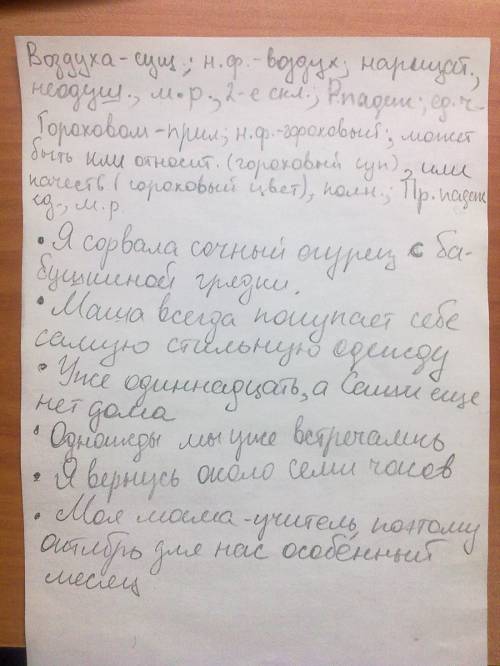 Воздуха-сущ.; н.ф.-воздух; нарицат.,
неодуш., м.р., 2-е скл.; Р.падеж; ед.ч-
Гороховом-прил; н.ф.-гороховый; может
быть или относит. (гороховый суп), или
качеств (гороховый цвет), полн.; Пр.падеж
ед., м.р
• Я сорвала сочный огурец с ба-
бушкиной грядки.
• Маша всегда покупает себе
самую стильную одежду
• Уже одиннадцать, а Саши еще
нет дома
• Однажды мы уже встречались
• Я вернусь около семи часов
• Моя мама-учитель, поэтому
октябрь для нас особенный
месяц